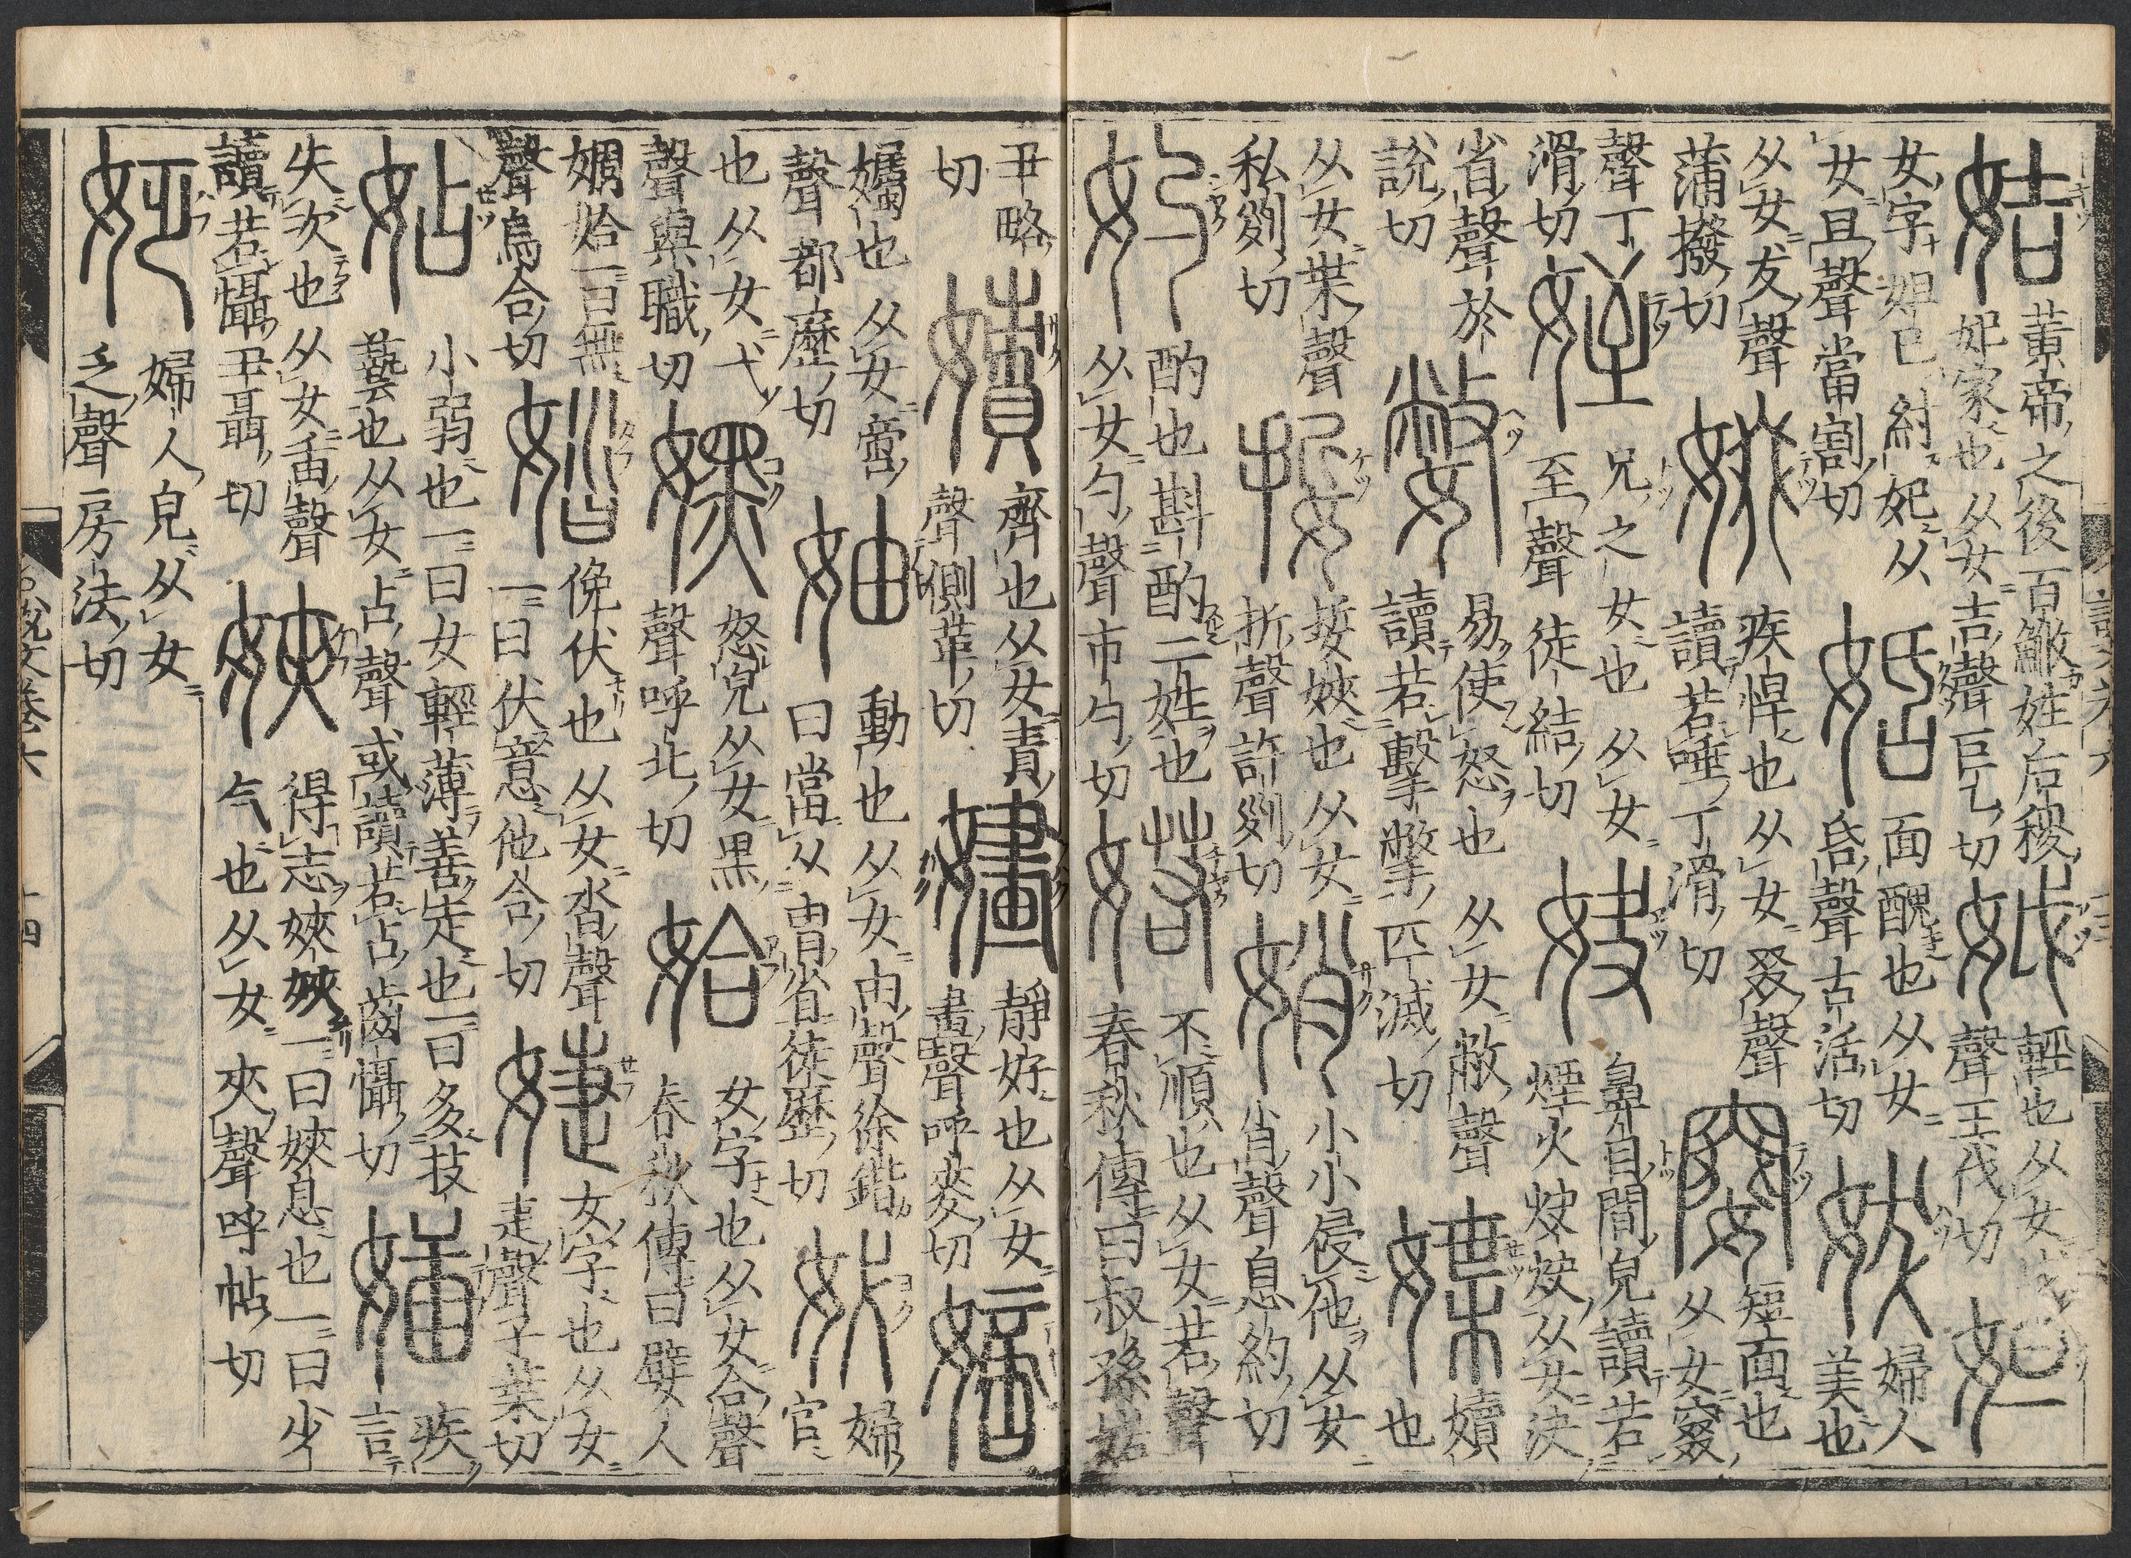 姞
黄帝之後百鮍姓后稷
妃家也从女吉聲巨乙切
娀
輕也从女戉
聲王伐切
妲
女字妲己紂妃从
女且聲當割切
姡
面醜也从女
昏聲古活切
妭
婦人
美也
从女犮聲
蒲撥切
娺
疾悍也从女叕聲
讀若唾丁滑切
短面也
从女窡
聲丁
滑切
姪
兄之女也从女
至聲徒結切
妜
鼻目間皃讀若
煙火炔炔从女決
省聲於
說切
嫳
易使怒也从女敝聲
讀若擊擎匹滅切
媟
嬻
也
从女枼聲
私列切
娎
娎㛍也从女
折聲許列切
娋
小小侵他从女
肖聲息約切
妁
酌也斟酌二姓也
从女勺聲市勺切
婼
不順也从女若聲
春秋傳曰叔孫婼
丑略
切
嫧
齊也从女責
聲側革切
嫿
靜好也从女
畫聲呼麥切
嫡
孎也从女啻
聲都歷切
妯
動也从女由聲徐鍇
曰當从胄省徒歷切
㚤
婦
官
也从女弋
聲與職切
嫼
怒皃从女黑
聲呼北切
姶
女字也从女合聲
春秋傳曰嬖人
婤姶一曰無
聲烏合切
㛥
俛伏也从女沓聲
一曰伏意他合切
婕
女字也从女
疌聲子葉切
㚲
小弱也一曰女輕薄善走也一曰多技
藝也从女占聲或讀若占齒懾切
疾
言
失次也从女臿聲
讀若懾丑聶切
㛍
得志㛍㛍一曰㛍息也一曰少
气也从女夾聲呼帖切
姂
婦人皃从女
乏聲房法切